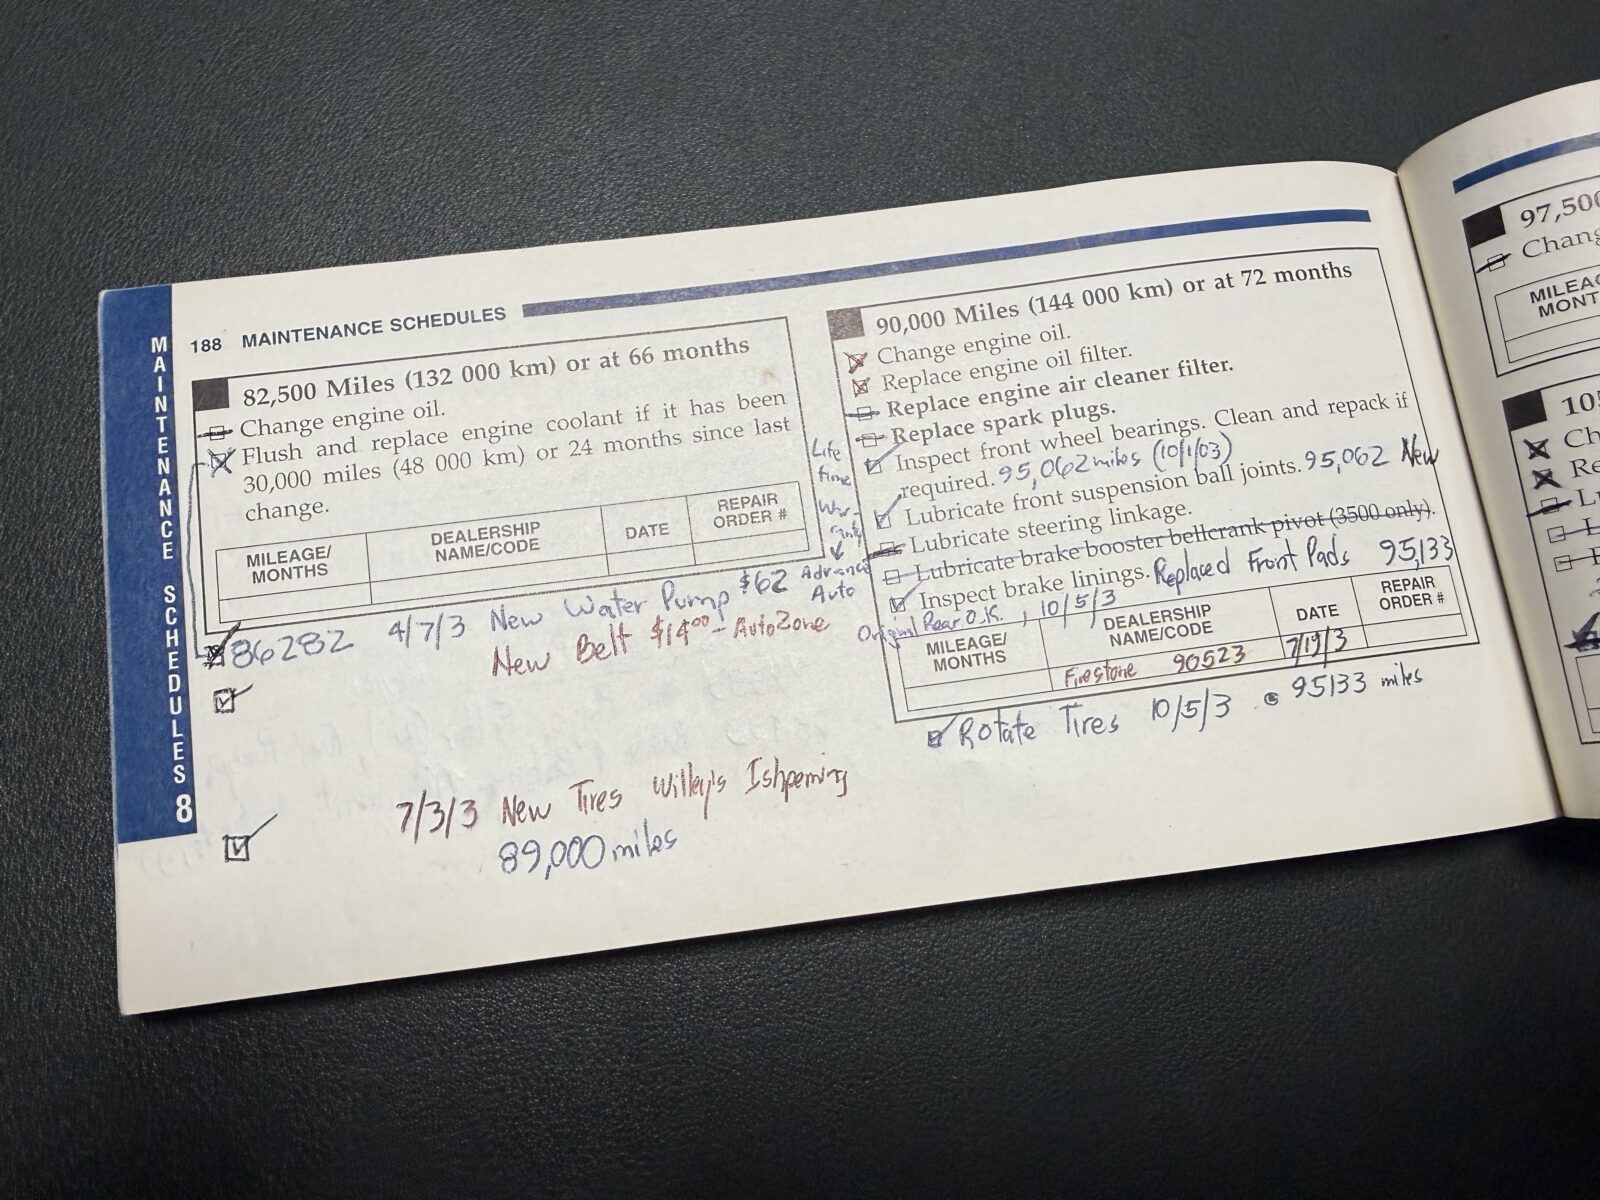 188 MAINTENANCE SCHEDULES
82,500 Miles (132 000 km) or at 66 months
Change engine oil.
Flush and replace engine coolant if it has been
30,000 miles (48 000 km) or 24 months since last
change.
MILEAGE/
MONTHS
DEALERSHIP
NAME/CODE
DATE
REPAIR
ORDER #
86282 4/7/3 New Water Pump $62
New Belt $14.00 - AutoZone
Life
time
War-
ranty
Advance
Auto
7/3/3 New Tires Willey's Ishpeming
89,000 miles
90,000 Miles (144 000 km) or at 72 months
Change engine oil.
Replace engine oil filter.
Replace engine air cleaner filter.
Replace spark plugs.
Inspect front wheel bearings. Clean and repack if
required. 95,062 miles (10/1/03)
Lubricate front suspension ball joints. 95,062 New
Lubricate steering linkage.
Lubricate brake booster bellcrank pivot (3500 only).
Inspect brake linings. Replaced Front Pads 95,133
Original Rear O.K. , 10/5/3
MILEAGE/
MONTHS
DEALERSHIP
NAME/CODE
DATE
REPAIR
ORDER #
Firestone 90523 7/19/3
Rotate Tires 10/5/3 @ 95133 miles
MAINTENANCE SCHEDULES
8
97,50
Chang
MILEAG
MONT
10
Ch
Re
L
L